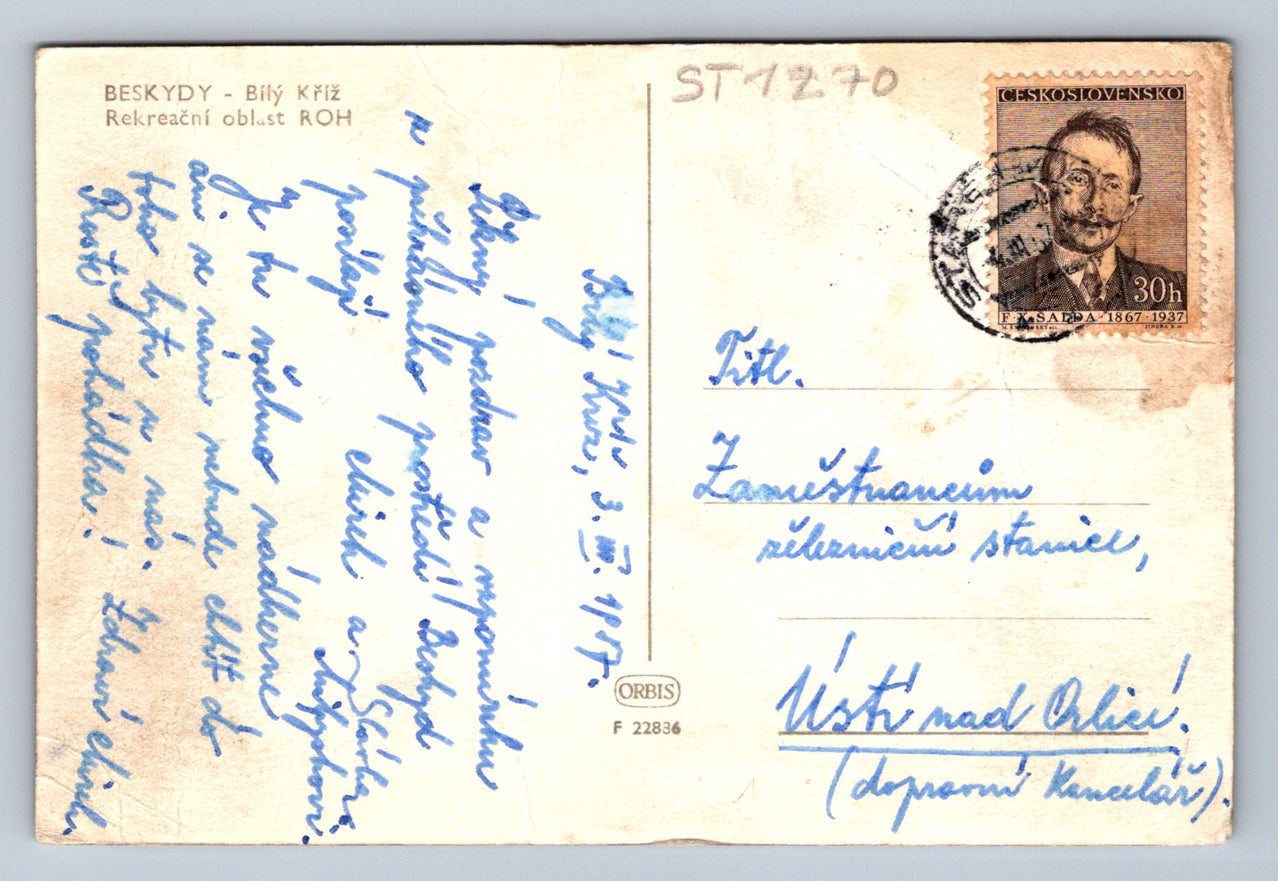 BESKYDY - Bílý Kříž
Rekreační oblast ROH
ST 1270
ČESKOSLOVENSKO
30h
F. X. ŠALDA · 1867 - 1937
Bílý Kříž, 3. III. 1957.
Pěkný pozdrav a vzpomínku
z překrásného prostředí Beskyd
posílají
a
Je tu všechno nádherné
ani se nám nebude chtít do
toho bytu u nás.
Prostě pohádka! Zdraví
Titl.
Zaměstnancům
železniční stanice,
Ústí nad Orlicí.
(dopravní kancelář).
ORBIS
F 22886